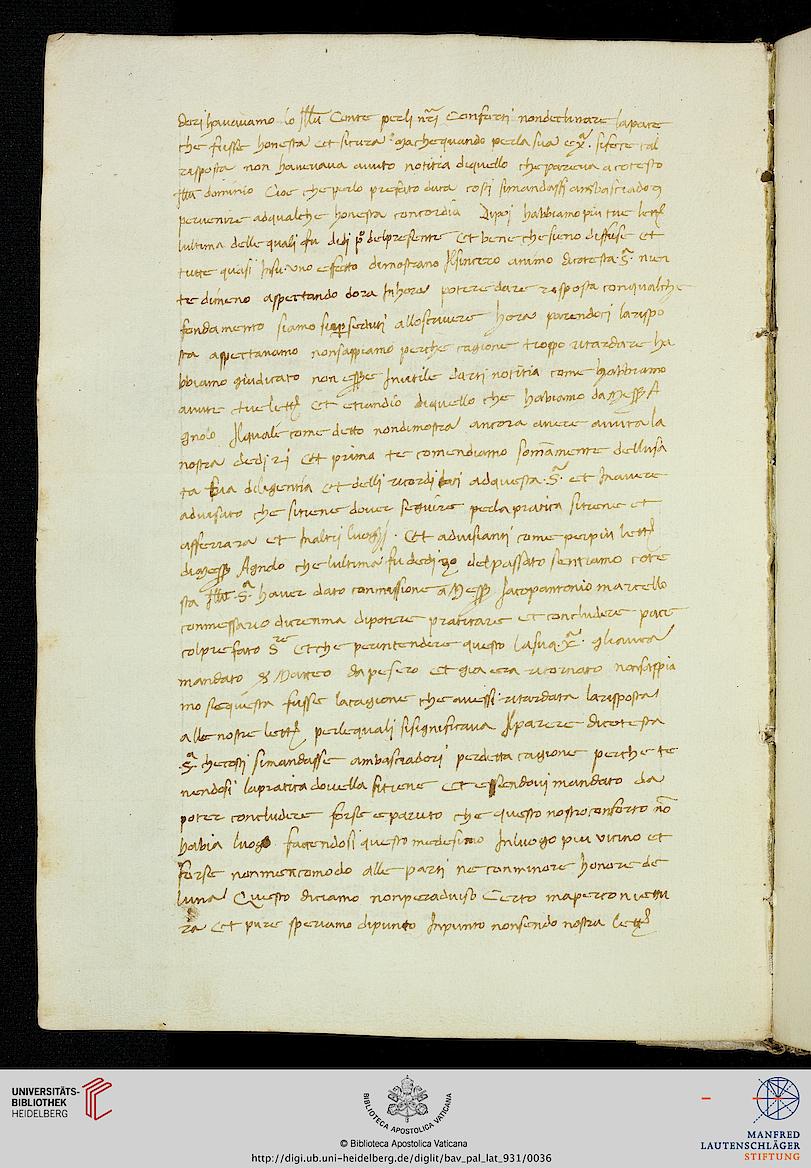 dori havavamo lo Illu Conte perli nrĩ Conforti nondeclinare lapace
che fusse honesta et sicura mache quando perla sua ex.ª sifece tal
risposta non havevava avuto notitia diquello che pareva acotesto
Illũ dominio Cioe che perlo prefato duca costi simandassi ambasciadoȝ
pervenire adqualche honesta concordia Dipoj habbiamo piu tue lettȝ
lultima delle quali fu didi pº delpresente Et bene che sieno diffuse et
tutte quasi Insu uno effetto dimostrano Ilsincero animo dicotesta .S.ª nien
te dimeno aspettando dora Inhora potere dare risposta conqualche
fondamento siamo allo scrivere hora parendoci larispo
sta aspectavamo nonsappiamo perche cagione troppo ritardare ha
bbiamo giudicato non essere Inutile darti notitia come habbiamo
avute tue lettȝ Et etiandio diquello che habiamo da Messȝ A
gnolo Ilquale come detto nondimostra ancora avere avuta la
nostra dedi 21 Et prima te comendiamo somamente dellusa
ta tua diligentia et delli ricordi dati adquesta .S.ª et Inavere
advisato che sitiene dover seguire perla pratica sitiene et
afferrara et Inaltri luoghi . Et advisianti come perpiu lettȝ
di Messȝ Agnolo che lultima fu dedi 29 delpassato sentiamo cote
sta Illũ .S.ª haver dato commissione a Messȝ Jacopantonio marcello
commessario dicrema dipotere praticare et concludere pace
colprefato S.re Et che perintendere questo lasua .Ex.ª gliavea
mandato Matteo dapesero et gia era ritornato nonsappia
mo sequesta fusse lacagione che avessi ritardata larisposta
alle nostre lettȝ perlequali sisignificava Ilparere dicotesta
.S.ª checosti simandasse ambasciadori perdetta cagione perche te
nendosi lapratica dovella sitiene Et essendovi mandato da
poter concludere forse eparuto che questo nostro conforto nõ
habia luogo facendosi questo medesimo Inluogo piu vicino et
forse nonmen comodo alle parti ne conminore honore de
luna Questo diciamo nonperadviso Certo maperconiettu
ra Et pure speriamo dipunto Inpunto nonsendo nostra lettȝ
UNIVERSITÄTS-
BIBLIOTHEK
HEIDELBERG
BIBLIOTHECA APOSTOLICA VATICANA
© Biblioteca Apostolica Vaticana
http://digi.ub.uni-heidelberg.de/diglit/bav_pal_lat_931/0036
MANFRED
LAUTENSCHLÄGER
STIFTUNG